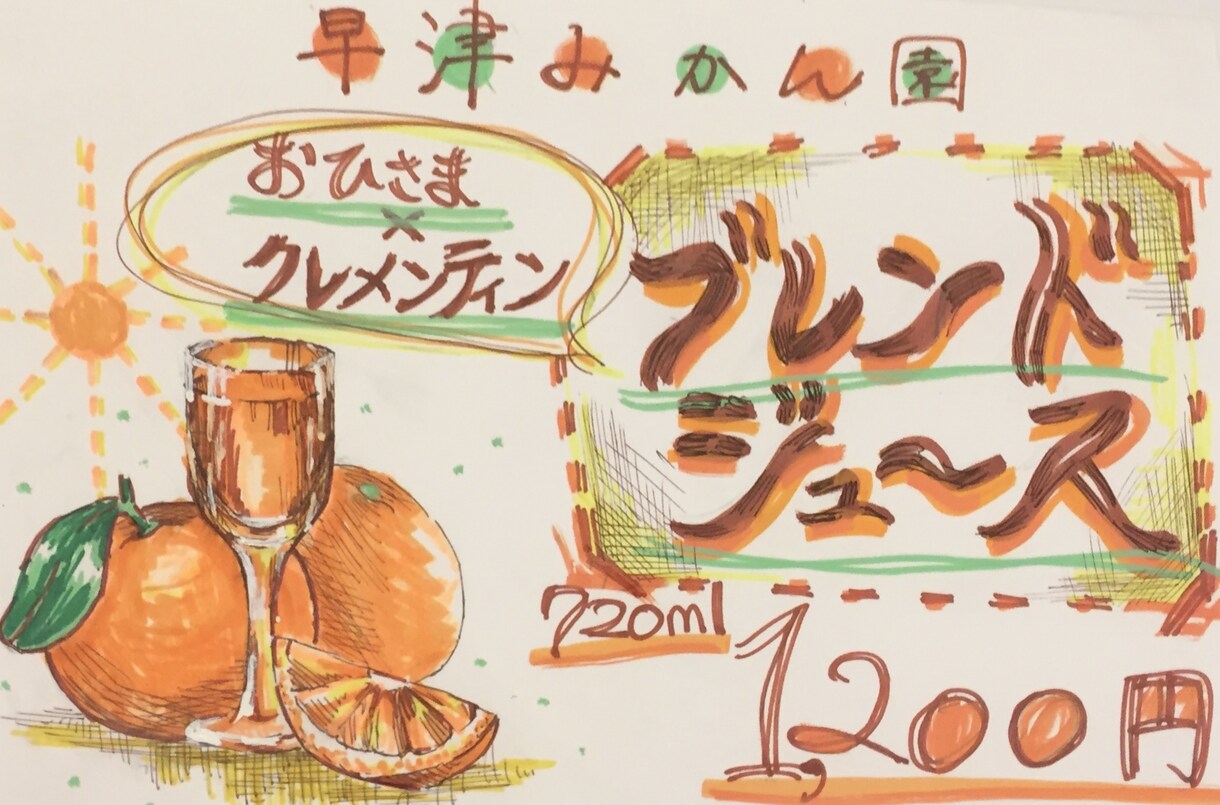 早津みかん園
おひさま
×
クレメンティン
ブレンド
ジュース
720ml
1,200円